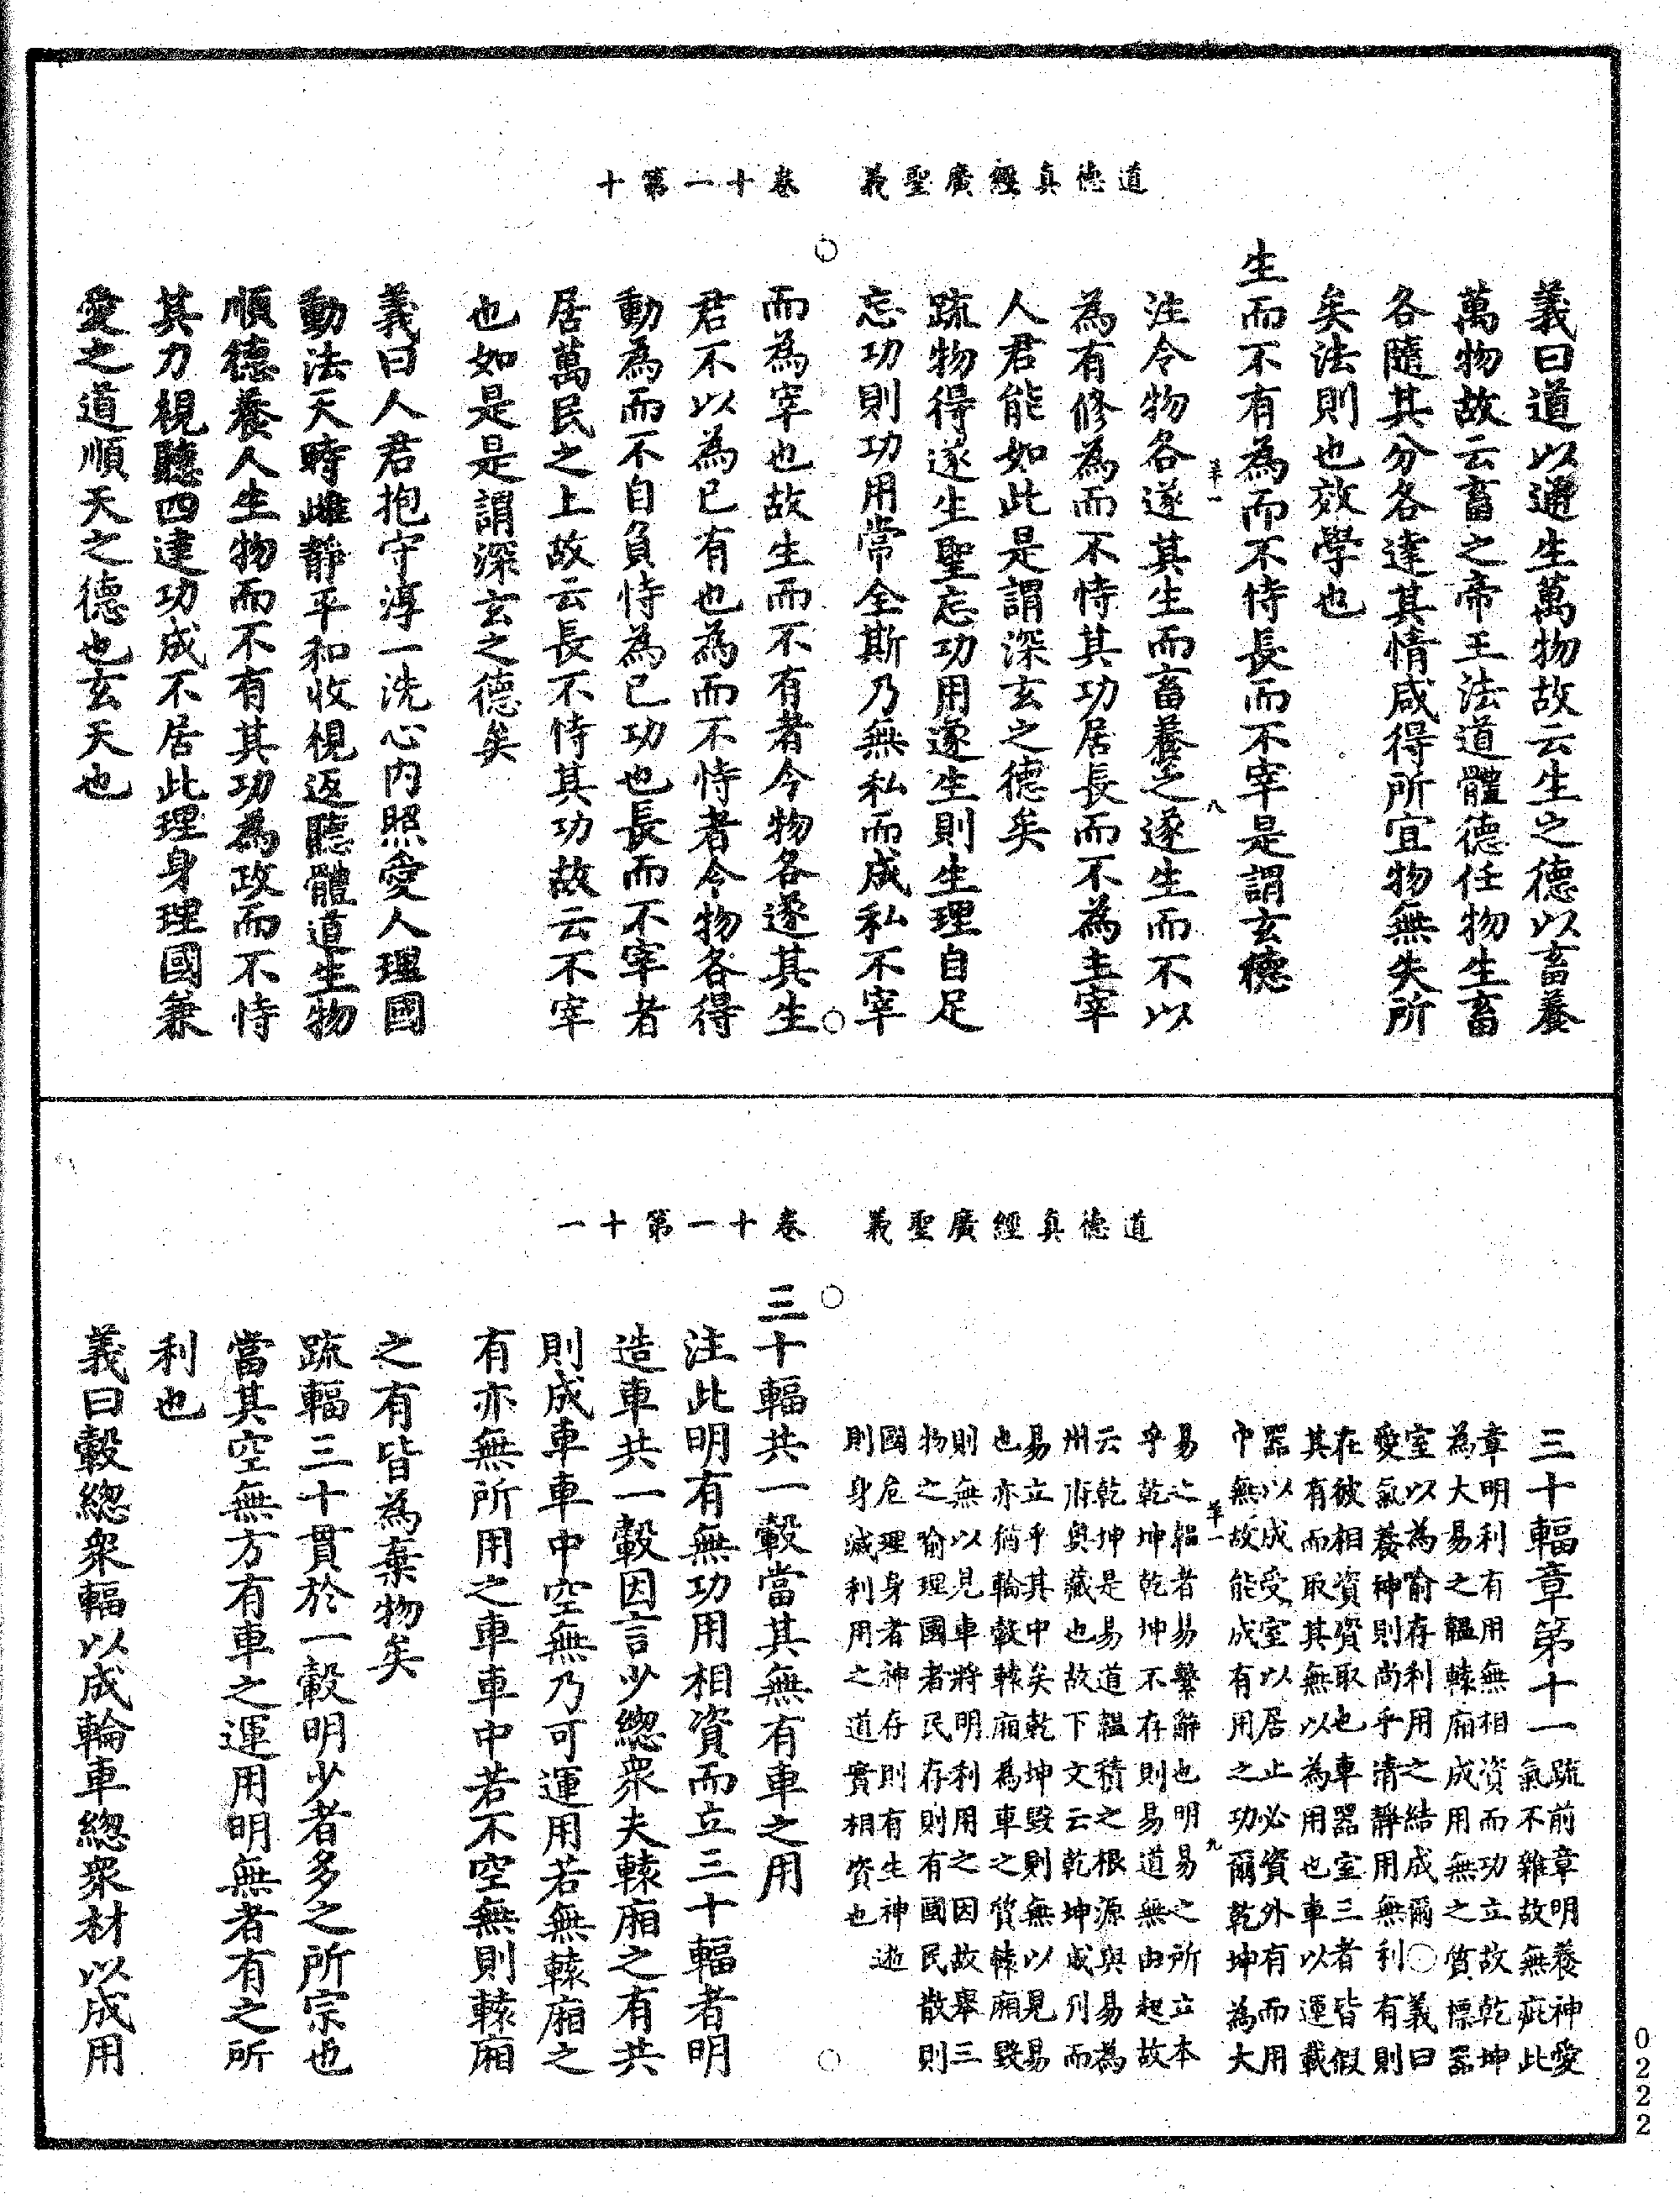 道德真經廣聖義　卷十一第十
義曰道以通生萬物故云生之德以畜養
萬物故云畜之帝王法道體德任物生畜
各隨其分各達其情咸得所宜物無失所
矣法則也效學也
生而不有為而不恃長而不宰是謂玄德
羊一　八
注令物各遂其生而畜養之遂生而不以
為有修為而不恃其功居長而不為主宰
人君能如此是謂深玄之德矣
疏物得遂生聖忘功用遂生則生理自足
忘功則功用常全斯乃無私而成私不宰
而為宰也故生而不有者令物各遂其生
君不以為已有也為而不恃者令物各得
動為而不自負恃為已功也長而不宰者
居萬民之上故云長不恃其功故云不宰
也如是是謂深玄之德矣
義曰人君抱守淳一洗心內照愛人理國
動法天時雌靜平和收視返聽體道生物
順德養人生物而不有其功為政而不恃
其力視聽四達功成不居此理身理國兼
愛之道順天之德也玄天也
道德真經廣聖義　卷十一第十一
三十輻章第十一疏前章明養神愛
氣不雜故無疵此
章明利有用無相資而功立故乾坤
為大易之韞轅廂成用無之質標器
室以為喻存利用之結成爾○義曰
愛氣養神則尚乎清靜用無利有則
在彼相資資取也車器室三者皆假
其有而取其無以為用也車以運載
器以成受室以居止必資外有而用
中無故能成有用之功爾乾坤為大
羊一　九
易之韞者易繫辭也明易之所立本
乎乾坤乾坤不存則易道無由起故
云乾坤是易道韞積之根源與易為
州府奧藏也故下文云乾坤成列而
易立乎其中矣乾坤毀則無以見易
也亦猶輪轂轅廂為車之質轅廂毀
則無以見車將明利用之因故舉三
物之喻理國者民存則有國民散則
國危理身者神存則有生神逝
則身滅利用之道實相資也
三十輻共一轂當其無有車之用
注此明有無功用相資而立三十輻者明
造車共一轂因言少總眾夫轅廂之有共
則成車車中空無乃可運用若無轅廂之
有亦無所用之車車中若不空無則轅廂
之有皆為棄物矣
疏輻三十貫於一轂明少者多之所宗也
當其空無方有車之運用明無者有之所
利也
義曰轂總眾輻以成輪車總眾材以成用
0222